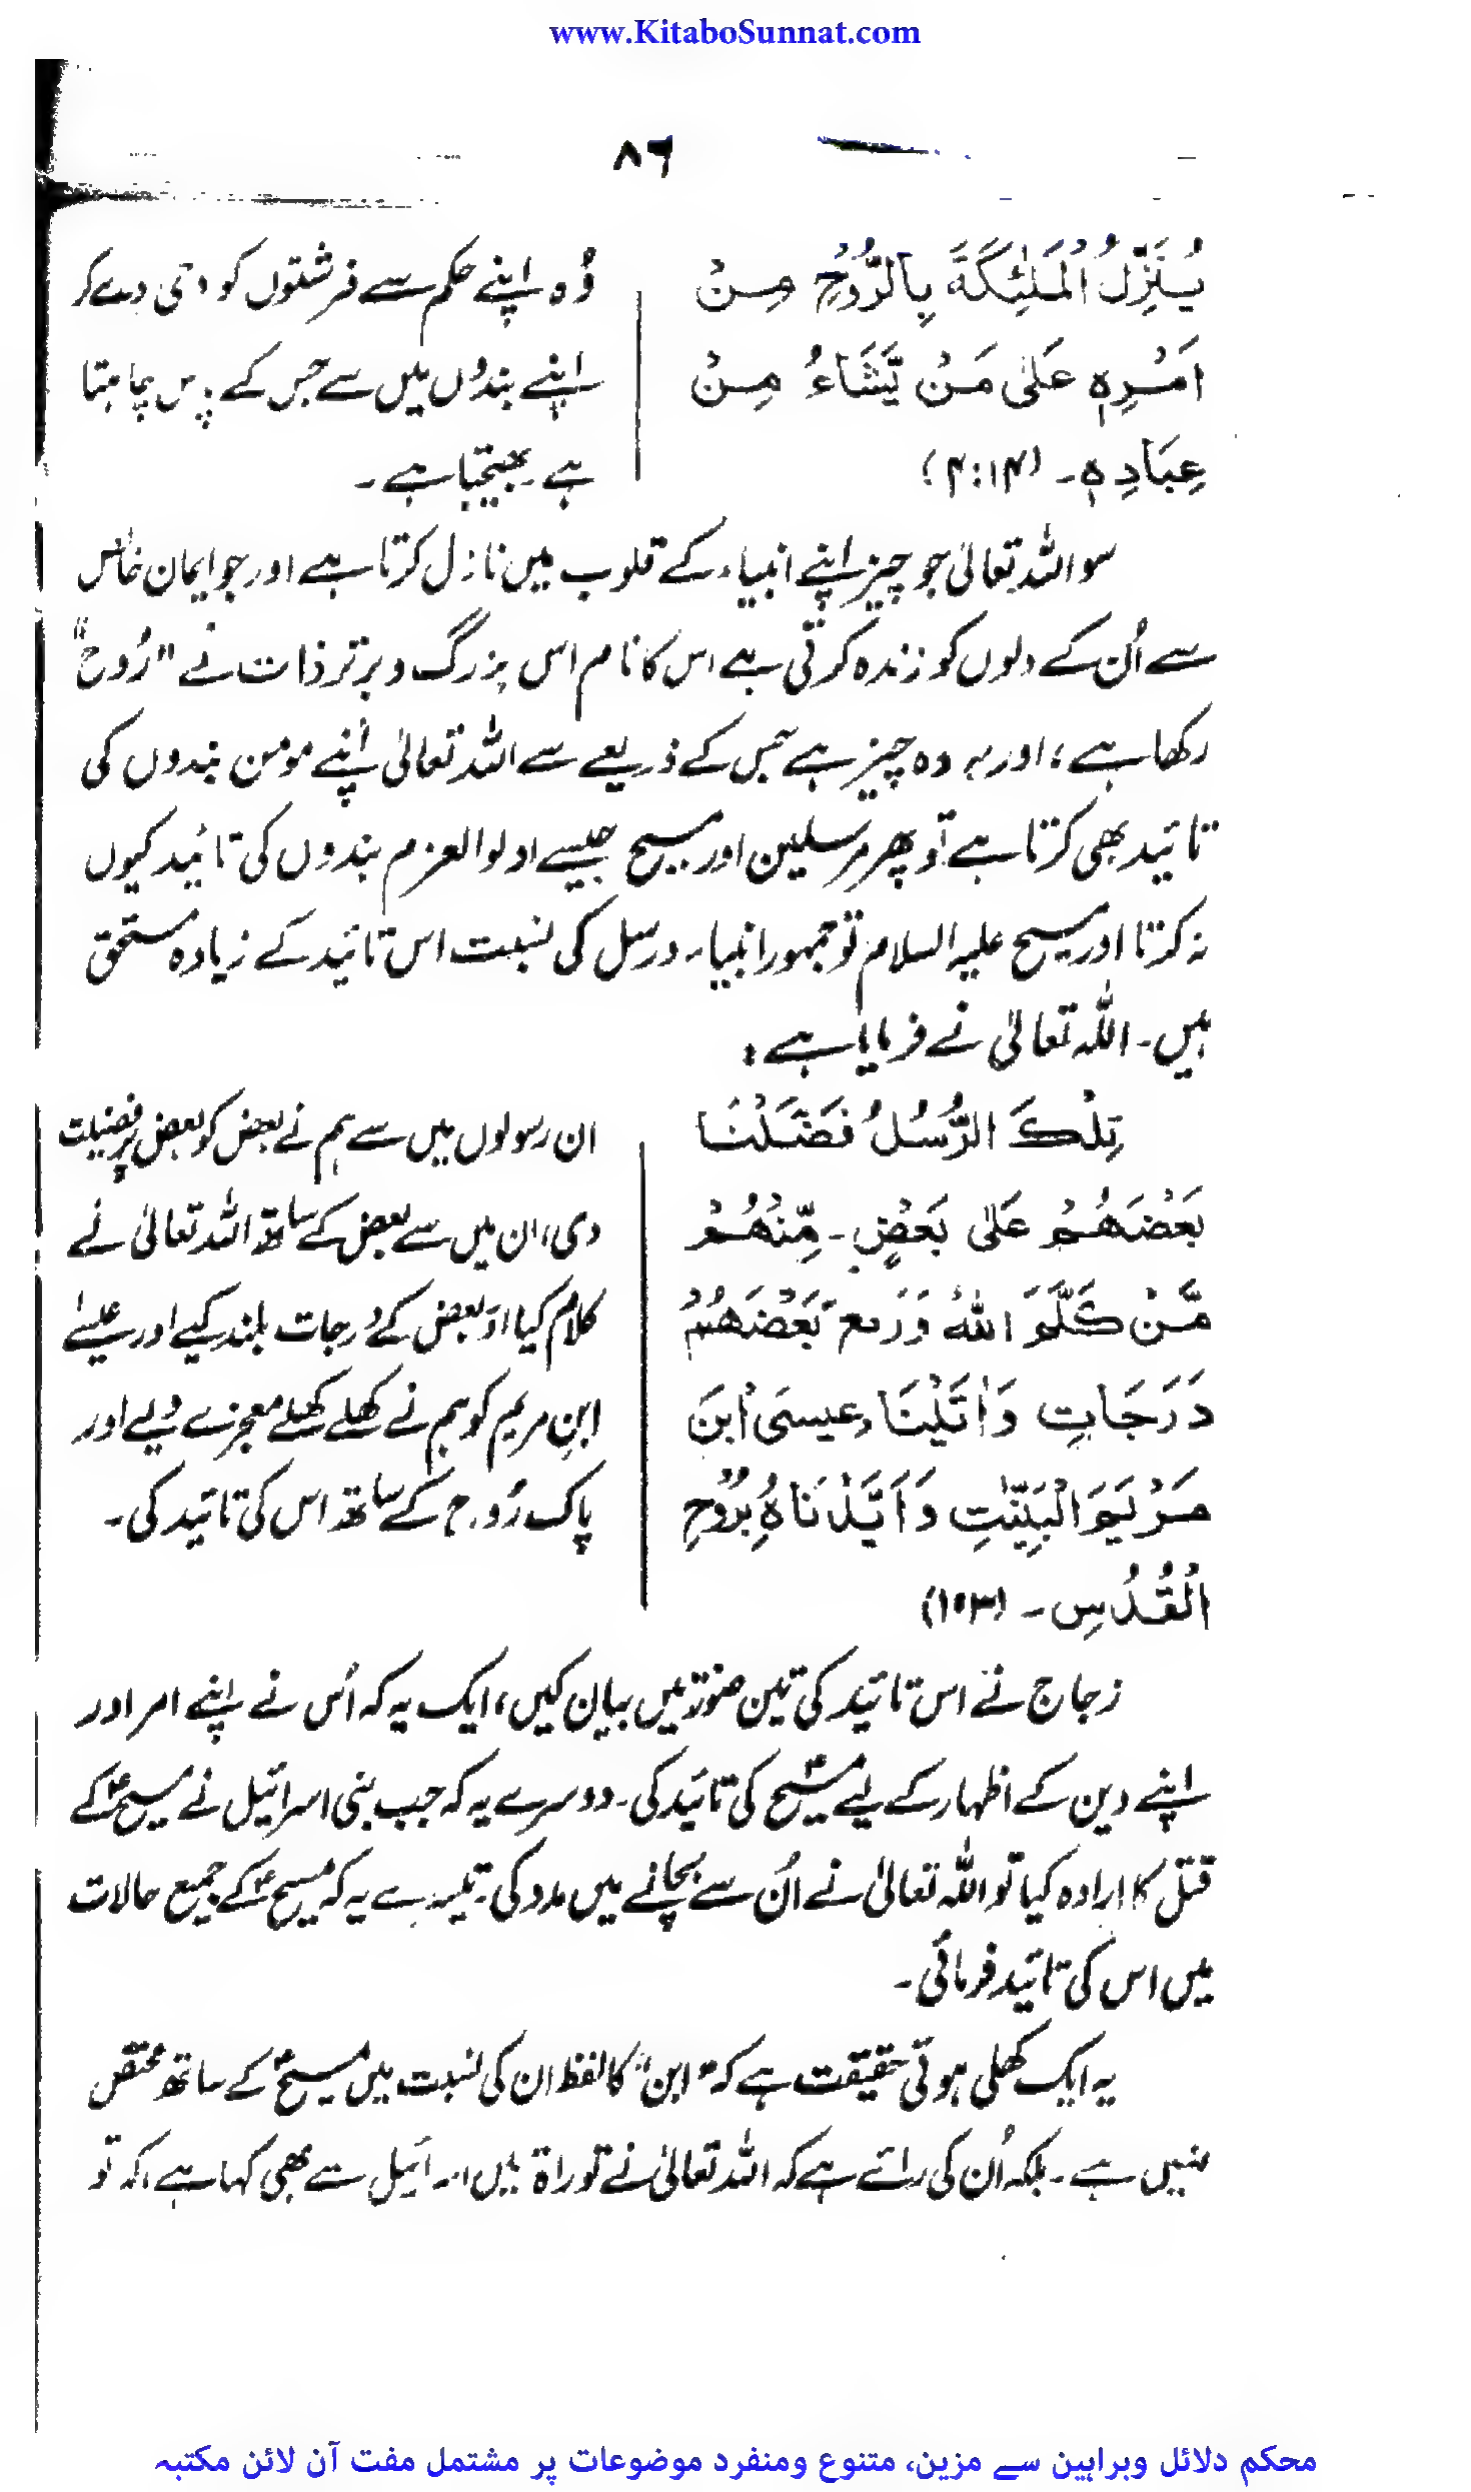 www.KitaboSunnat.com
۸۶
يُنَزِّلُ الْمَلٰئِكَةَ بِالرُّوْحِ مِنْ
اَمْرِهٖ عَلٰى مَنْ يَّشَاءُ مِنْ
عِبَادِهٖ۔ (۱۴:۴)
وُہ اپنے حکم سے فرشتوں کو وحی دے کر
اپنے بندوں میں سے جس کے پاس چاہتا
ہے بھیجتا ہے۔
سو اللہ تعالیٰ جو چیز اپنے انبیاء کے قلوب میں نازل کرتا ہے اور جو ایمان خالص
سے اُن کے دلوں کو زندہ کرتی ہے اس کا نام اس بزرگ و برتر ذات نے "رُوح"
رکھا ہے؛ اور یہ وہ چیز ہے جس کے ذریعے سے اللہ تعالیٰ اپنے مومن بندوں کی
تائید بھی کرتا ہے تو پھر مرسلین اور مسیح جیسے اولوالعزم بندوں کی تائید کیوں
نہ کرتا اور مسیح علیہ السلام تو جمہور انبیاء و رسل کی نسبت اس تائید کے زیادہ مستحق
ہیں۔ اللہ تعالیٰ نے فرمایا ہے:
تِلْكَ الرُّسُلُ فَضَّلْنَا
بَعْضَهُمْ عَلٰى بَعْضٍ۔ مِّنْهُمْ
مَّنْ كَلَّمَ اللهُ وَرَفَعَ بَعْضَهُمْ
دَرَجَاتٍ وَاٰتَيْنَا عِيسَى ابْنَ
مَرْيَمَ الْبَيِّنٰتِ وَاَيَّدْنَاهُ بِرُوْحِ
الْقُدُسِ۔ (۱۵۳)
ان رسولوں میں سے ہم نے بعض کو بعض پر فضیلت
دی، ان میں سے بعض کے ساتھ اللہ تعالیٰ نے
کلام کیا اور بعض کے درجات بلند کیے اور عیسےٰ
ابنِ مریم کو ہم نے کھلے کھلے معجزے دیے اور
پاک رُوح کے ساتھ اس کی تائید کی۔
زجاج نے اس تائید کی تین صورتیں بیان کیں، ایک یہ کہ اُس نے اپنے امر اور
اپنے دین کے اظہار کے لیے مسیحؑ کی تائید کی۔ دوسرے یہ کہ جب بنی اسرائیل نے مسیحؑ کے
قتل کا ارادہ کیا تو اللہ تعالیٰ نے اُن سے بچانے میں مدد کی۔ تیسرے یہ کہ مسیحؑ کے جمیع حالات
میں اس کی تائید فرمائی۔
یہ ایک کھلی ہوئی حقیقت ہے کہ "ابن" کا لفظ ان کی نسبت میں مسیحؑ کے ساتھ مختص
نہیں ہے۔ بلکہ اُن کی رائے ہے کہ اللہ تعالیٰ نے توراۃ میں اسرائیل سے بھی کہا ہے، کہ تو
محکم دلائل وبراہین سے مزین، متنوع ومنفرد موضوعات پر مشتمل مفت آن لائن مکتبہ